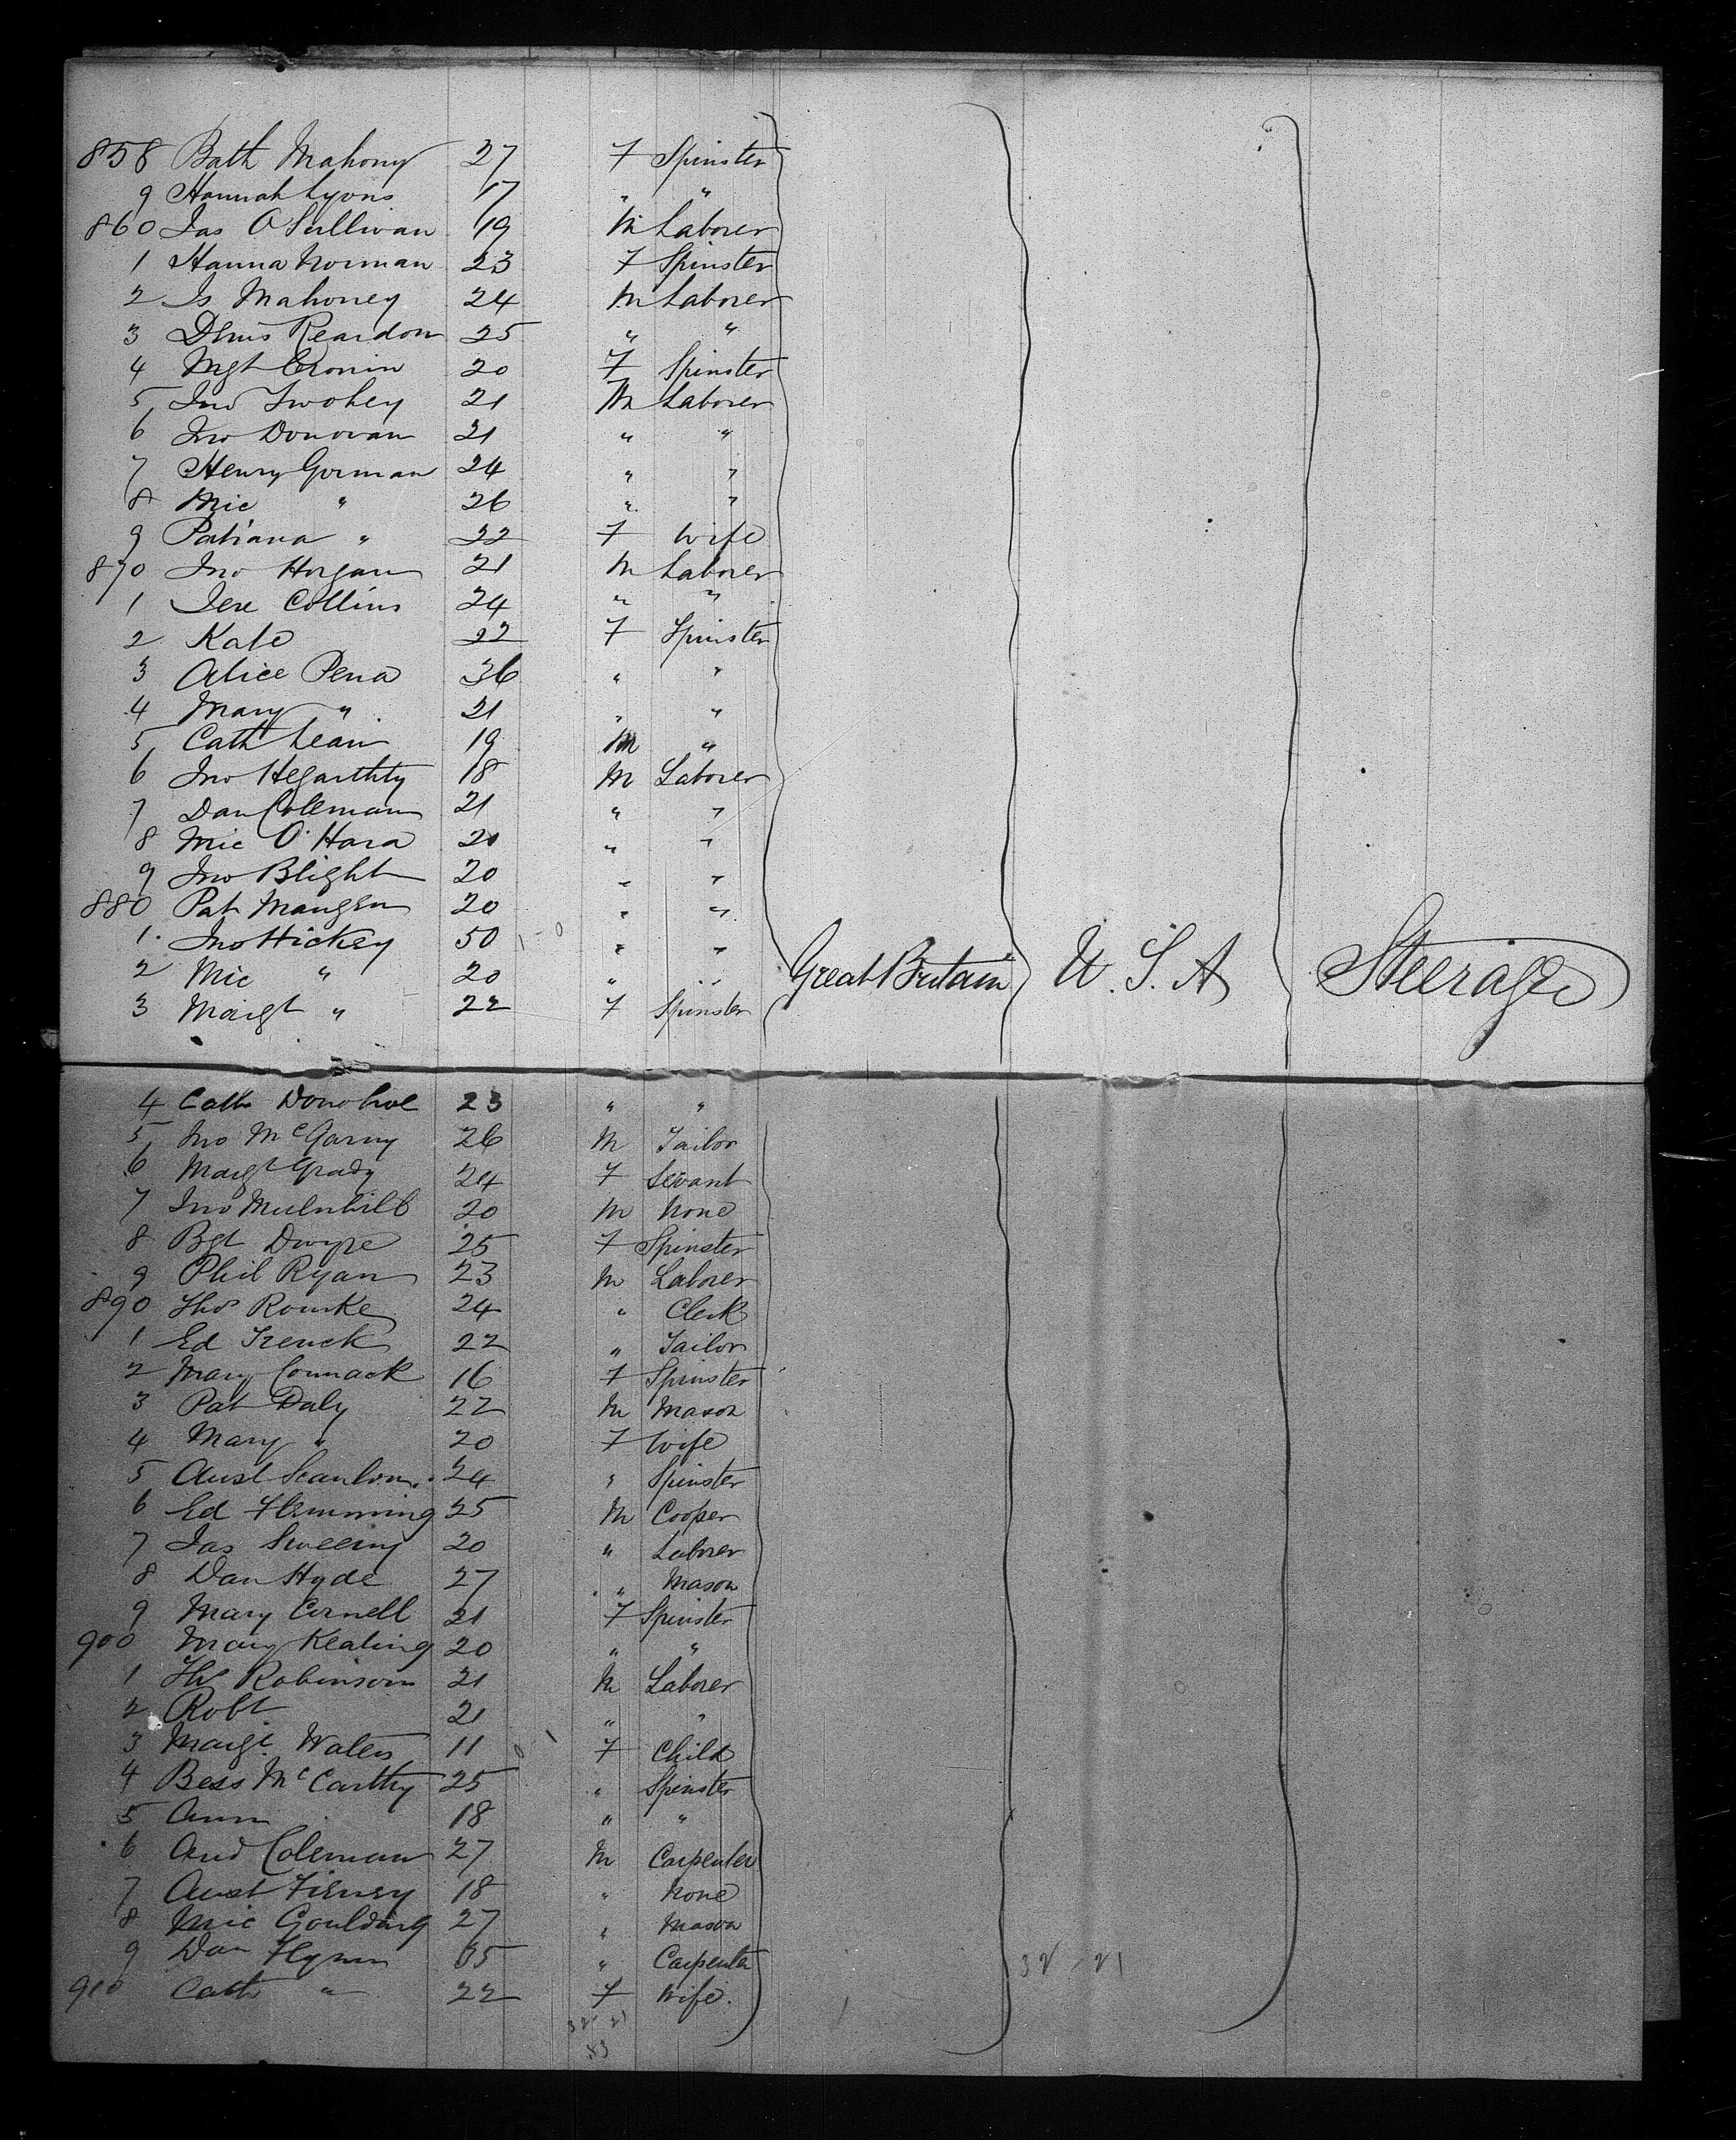 858 Bath Mahony 27 F Spinster
9 Hannah Lyons 17 " "
860 Jas O Sullivan 19 M Laborer
1 Hanna Norman 23 F Spinster
2 Js Mahoney 24 M Laborer
3 Denis Reardon 25 " "
4 Mgt Cronin 20 F Spinster
5 Jno Twohey 21 M Laborer
6 Jno Donovan 21 " "
7 Henry Gorman 24 " "
8 Mic " 26 " "
9 Patiana " 22 F Wife
870 Jno Horgan 21 M Laborer
1 Jere Collins 24 " "
2 Kate 22 F Spinster
3 Alice Pena 36 " "
4 Mary " 21 " "
5 Cath Lean 19 M "
6 Jno Hegarthty 18 M Laborer
7 Dan Coleman 21 " "
8 Mic O'Hara 20 " "
9 Jno Blight 20 " "
880 Pat Mangen 20 " "
1 Jno Hickey 50 1-0 " "
2 Mic " 20 " " Great Britain U.S.A Steerage
3 Margt " 22 F Spinster
4 Cath Donohoe 23 " "
5 Jno McGarny 26 M Tailor
6 Margt Grady 24 F Servant
7 Jno Mulnhill 20 M None
8 Bgt Dwyre 25 F Spinster
9 Phil Ryan 23 M Laborer
890 Thos Rourke 24 " Clerk
1 Ed Trenck 22 " Tailor
2 Mary Connack 16 F Spinster
3 Pat Daly 22 M Mason
4 Mary " 20 F Wife
5 Aust Scanlon 24 " Spinster
6 Ed Flemming 25 M Cooper
7 Jas Sweeny 20 " Laborer
8 Dan Hyde 27 " Mason
9 Mary Cornell 21 F Spinster
900 Mary Keating 20 " "
1 Ths Robinson 21 M Laborer
2 Robt 21 " "
3 Margt Waters 11 0-1 F Child
4 Bess McCarthy 25 " Spinster
5 Ann 18 " "
6 And Coleman 27 M Carpenter
7 Aust Tierney 18 " None
8 Mic Goulding 27 " Mason
9 Dan Flynn 35 " Carpenter 32-21
910 Cath " 22 F Wife
32-21
53